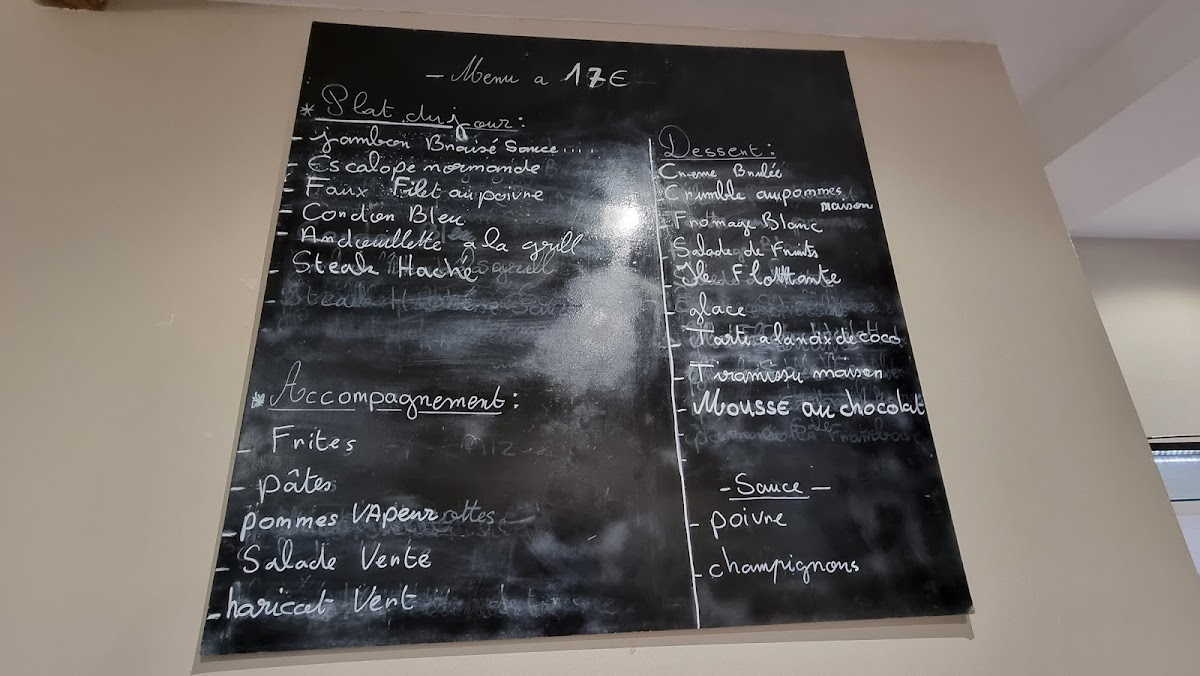 - Menu a 17€ -
* Plat du jour :
- jambon Braisé Sauce ....
- Escalope normande
- Faux Filet au poivre
- Cordon Bleu
- Andouillette a la grill
- Steak Haché
* Accompagnement :
- Frites
- pâtes
- pommes VApeur
- Salade Verte
- haricot Vert
Dessert :
Creme Brulée
- Crumble au pommes
maison
- Fromage Blanc
- Salade de Fruits
- Ile Flottante
- glace
- Tarte a la noix de coco
- Tiramissu maison
- MOUSSE au chocolat
- Sauce -
- poivre
- champignons